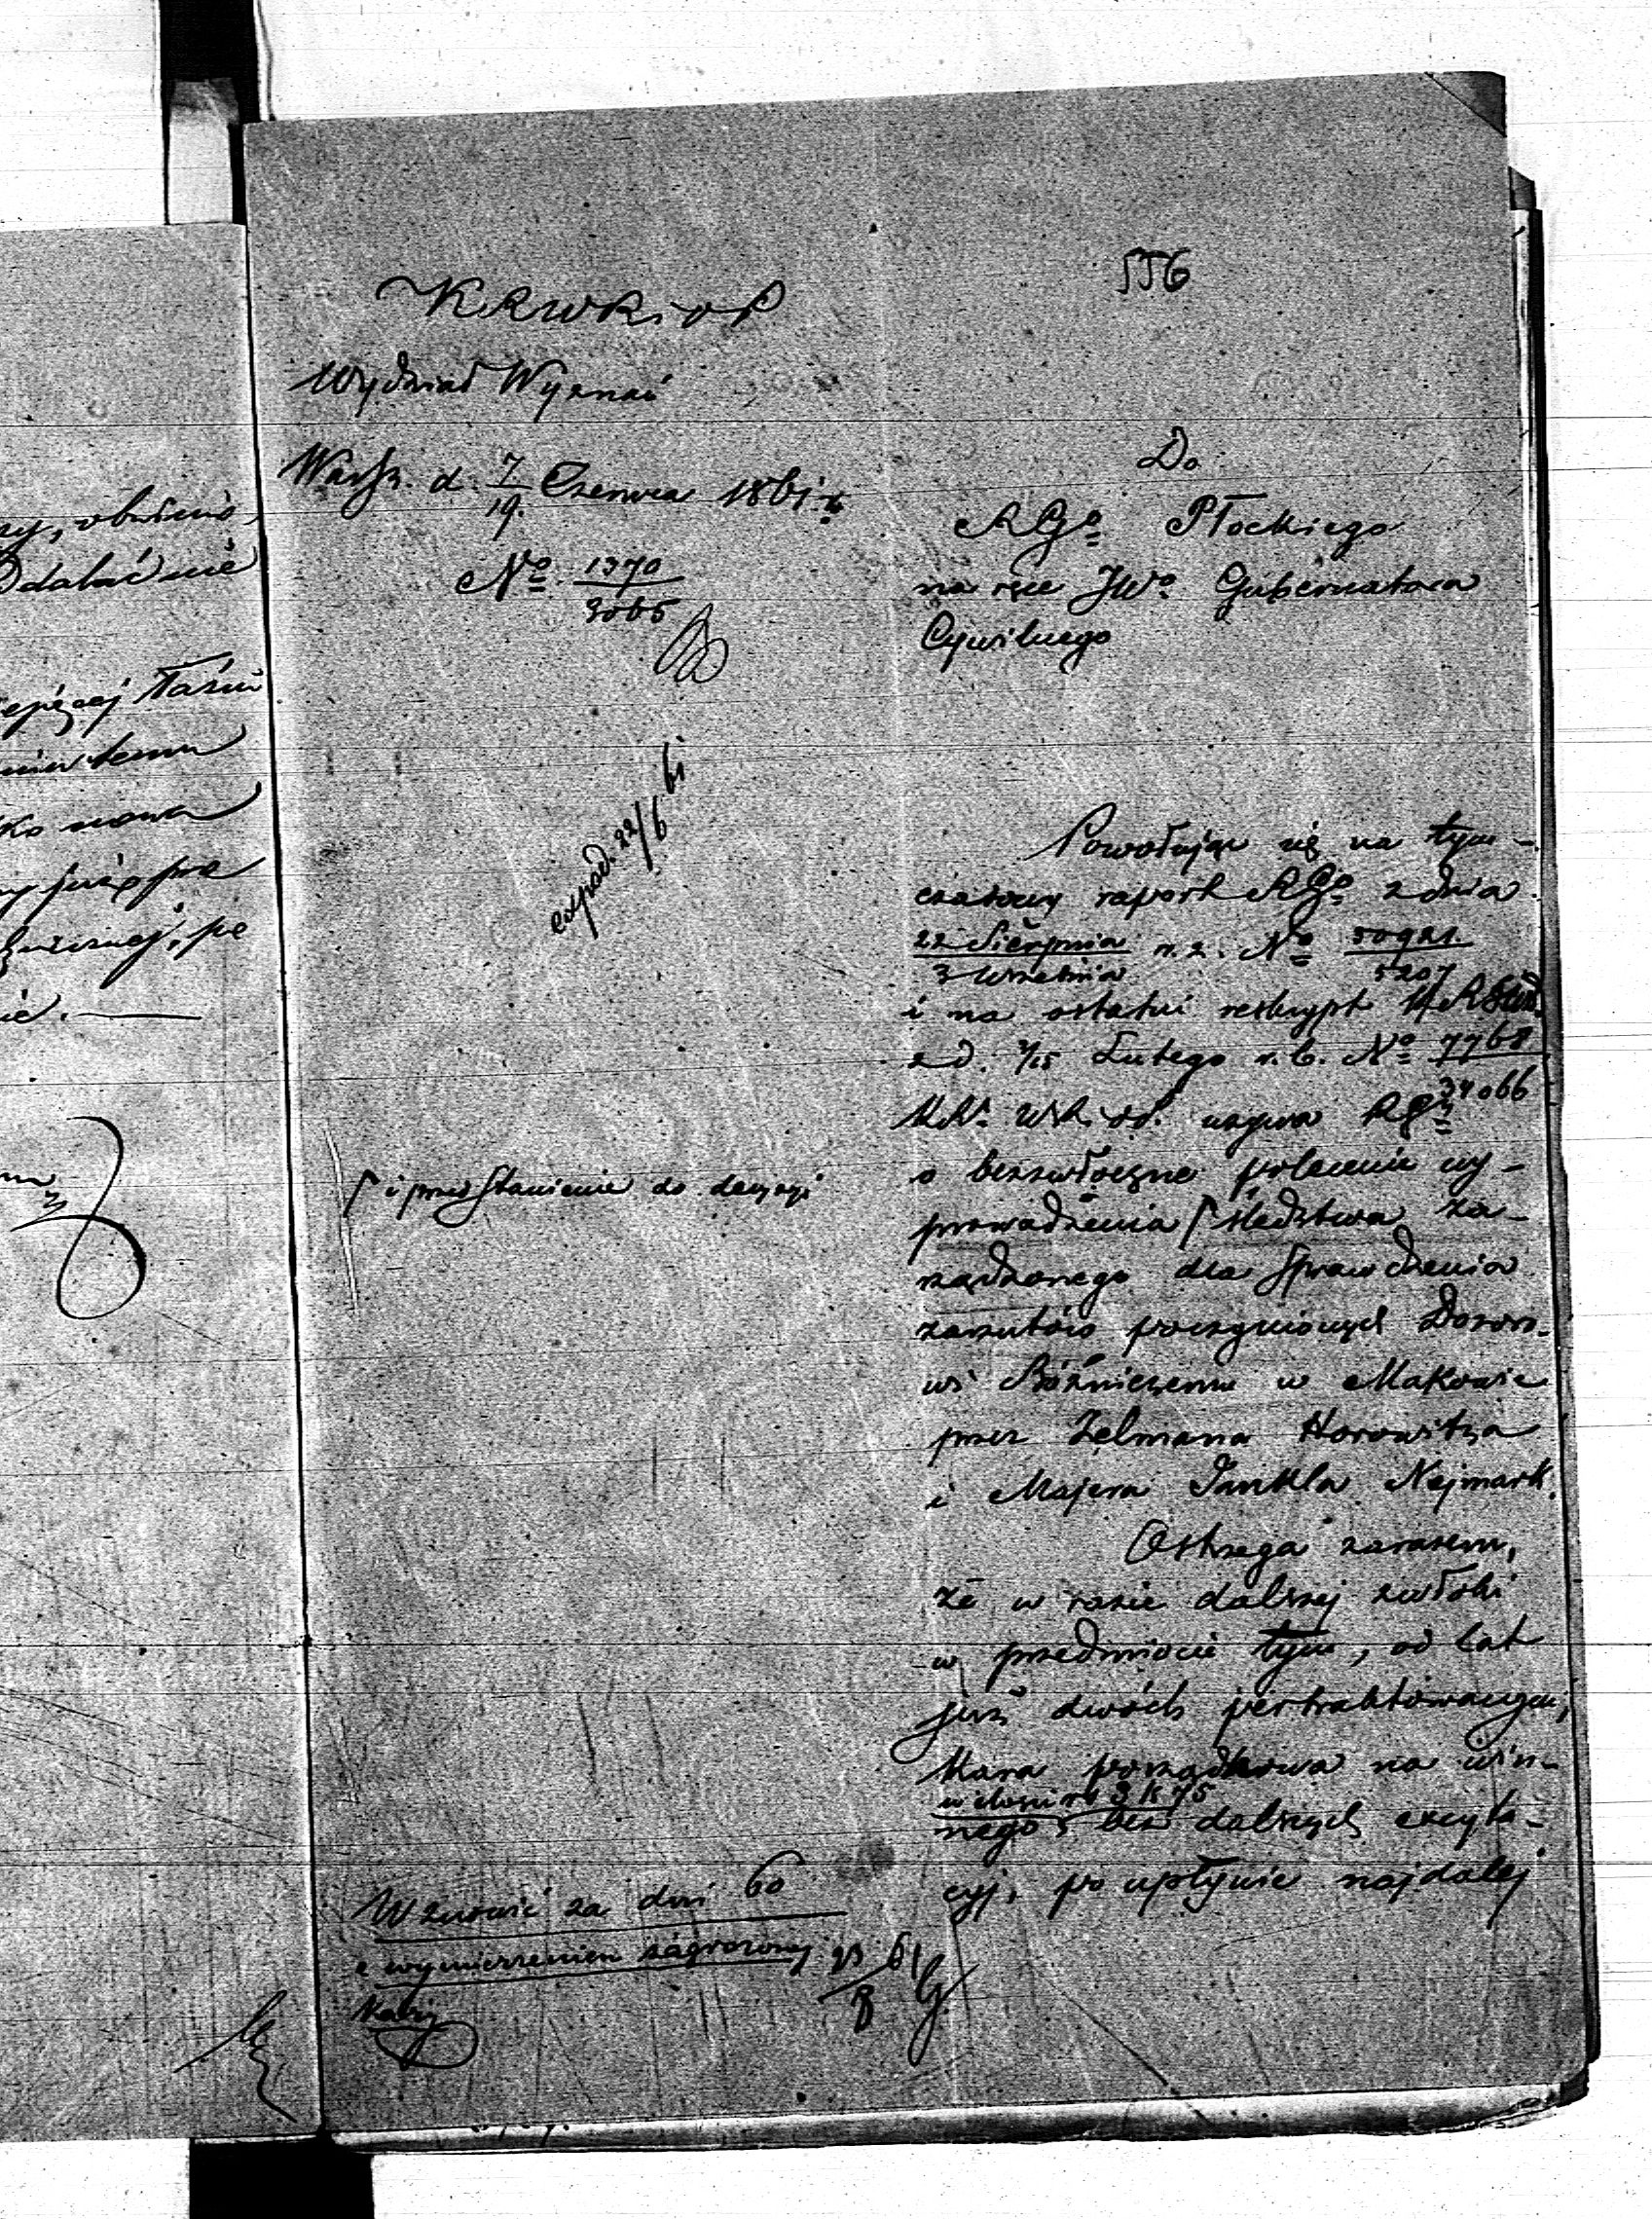 556
KRWRiOP
Wydział Wyznań
Warsz. d. 7/19. Czerwca 1861 r.
No 1370/3065
Do
RGo Płockiego
na ręce JWo Gubernatora
Cywilnego
exped. 22/6 61
Powołując się na tym-
czasowy raport RGo z dnia
22 Sierpnia/3 Września r. z. No 50921/5207
i na ostatni reskrypt
z d. 3/15 Lutego r. b. No 7768/34066
wzywa RG
o bezzwłoczne polecenie wy-
prowadzenia ſ śledztwa za-
ſ i przedstawienie do decyzyi
rządzonego dla sprawdzenia
zarzutów poczynionych Dozoro-
wi Bóżniczemu w Makowie
przez Zelmana Horowitza
i Majera Jankla Nejmark.
Ostrzega zarazem,
że w razie dalszej zwłoki
w przedmiocie tym, od lat
już dwóch pertraktowanym,
kara porządkowa na win-
w ilości rs 3 k 75
nego, bez dalszych excyta-
cyj, po upływie najdalej
Wznowić za dni 60
z wymierzeniem zagrożonej
kary
ry, 
Odałać nie
temu
ko nowa
już prze